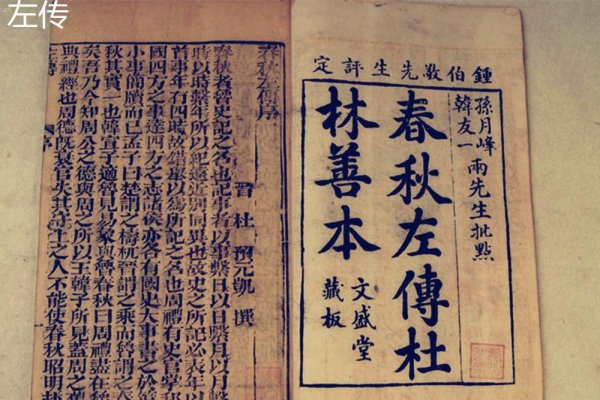 左传
鍾伯敬先生評定
孫月峰
韓友一
兩先生批點
春秋左傳杜
林善本
文盛堂
藏板
春秋左傳序
晉 杜 預元凱 撰
春秋者魯史記之名也記事者以事繫日以日繫月以月繫
時以時繫年所以紀遠近別同異也故史之所記必表年以
首事年有四時故錯舉以為所記之名也周禮有史官掌邦
國四方之事達四方之志諸侯亦各有國史大事書之於策
小事簡牘而已孟子曰楚謂之檮杌晉謂之乘而魯謂之春
秋其實一也韓宣子適魯見易象與魯春秋曰周禮盡在魯
矣吾乃今知周公之德與周之所以王韓子所見蓋周之舊
典禮經也周德既衰官失其守上之人不能使春秋昭明赴